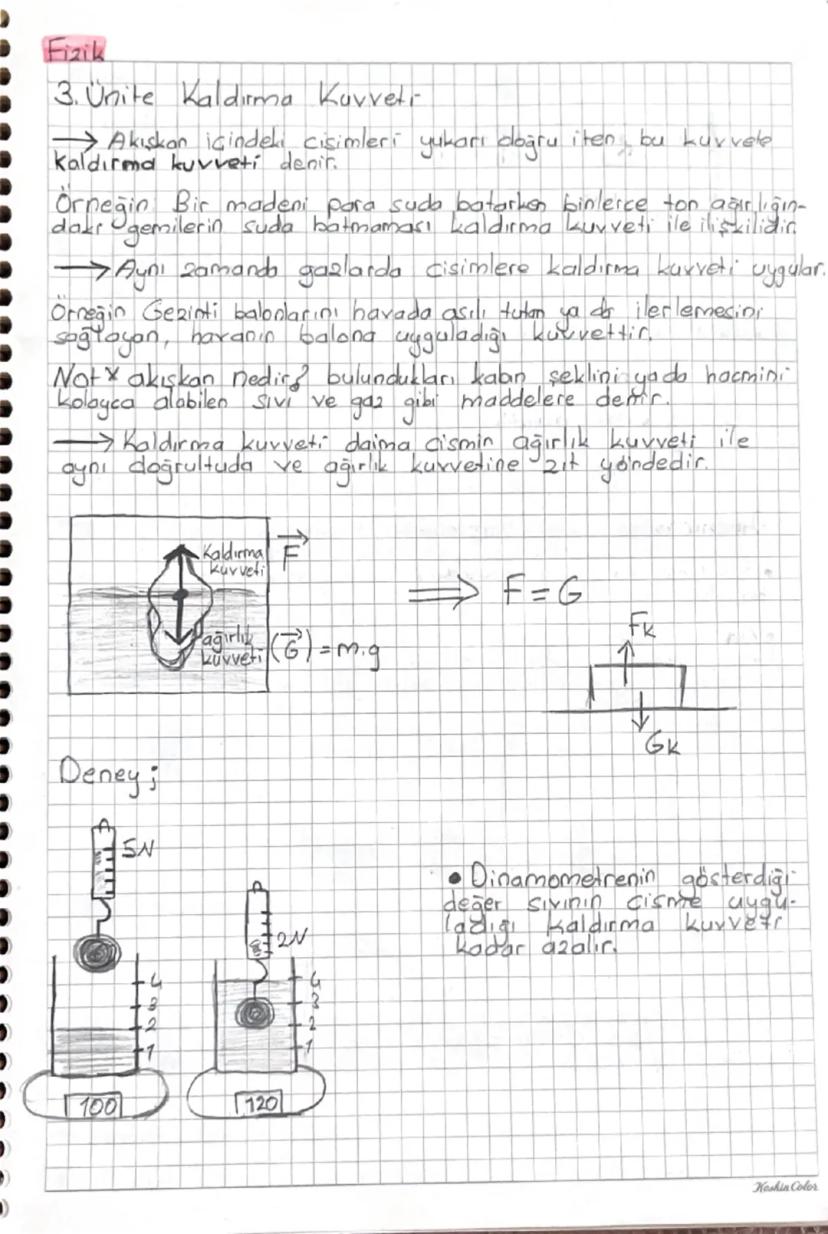 Fizik
3. Ünite Kaldırma Kuvveti
→ Akışkan içindeki cisimleri yukarı doğru iten, bu kuvvete
kaldırma kuvveti denir.
Örneğin Bir madeni para suda batarken binlerce ton ağırlığın-
daki gemilerin suda batmaması kaldırma kuvveti ile ilişkilidir.
→ Aynı zamanda gazlarda cisimlere kaldırma kuvveti uygular.
Örneğin Gezinti balonlarını havada asılı tutan ya da ilerlemesini
sağlayan, havanın balona uyguladığı kuvvettir.
Not* akışkan nedir? bulundukları kabın şeklini yada hacmini
kolayca alabilen sıvı ve gaz gibi maddelere denir.
→ Kaldırma kuvveti daima cismin ağırlık kuvveti ile
aynı doğrultuda ve ağırlık kuvvetine zıt yöndedir.
Kaldırma
kuvveti F
⇒ F=G
Fk
ağırlık
kuvveti (G) = m.g
Gk
Deney;
5N
• Dinamometrenin gösterdiği
değer sıvının cisme uygu-
ladığı kaldırma kuvveti
kadar azalır.
2N
4
3
2
1
4
3
2
1
100
120
Keskin Color